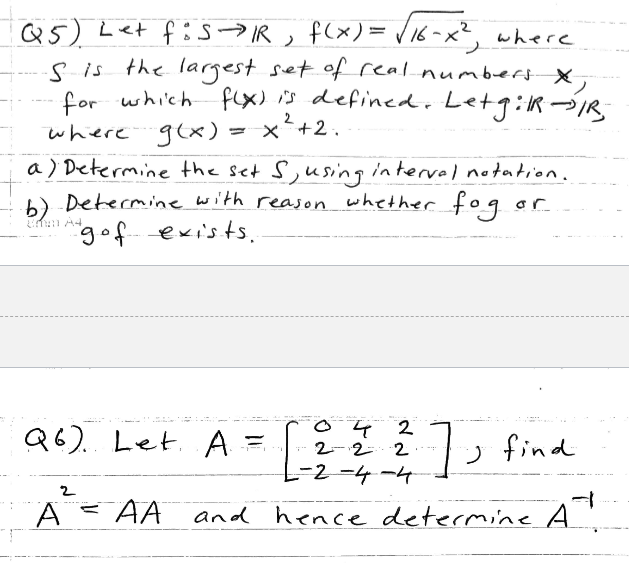 Q5) Let f:S→ℝ, f(x)=√(16-x²), where
S is the largest set of real numbers x,
for which f(x) is defined. Let g:ℝ→ℝ,
where g(x) = x²+2.
a) Determine the set S, using interval notation.
b) Determine with reason whether fog or
gof exists.
Q6). Let A = [0 4 2
2 2 2
-2 -4 -4], find
A² = AA and hence determine A⁻¹.